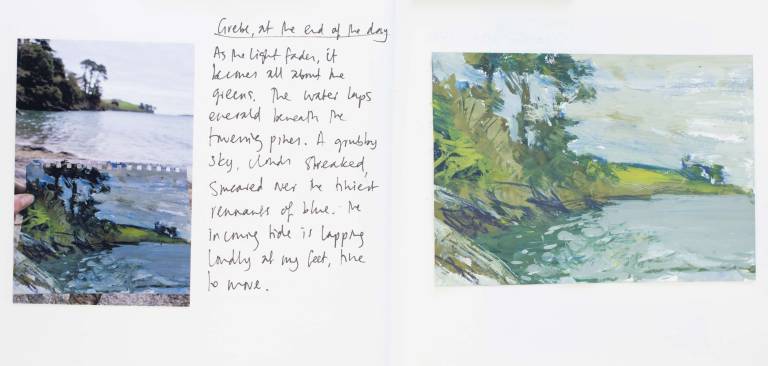 Grebe, at the end of the day
As the light fades, it
becomes all about the
greens. The water laps
emerald beneath the
towering pines. A grubby
sky, clouds streaked,
smeared over the tiniest
remnants of blue. The
incoming tide is lapping
loudly at my feet, time
to move.